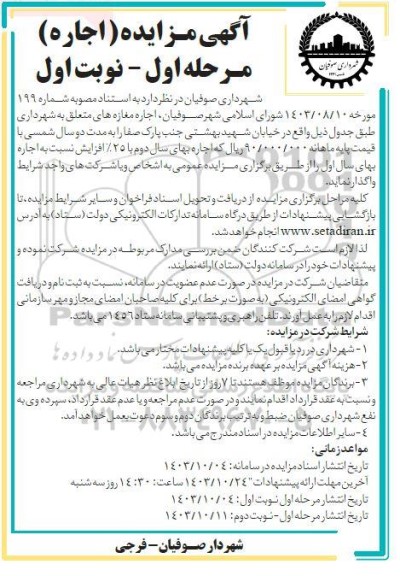 آگهی مزایده (اجاره)
مرحله اول - نوبت اول
شهرداری صوفیان
شهرداری صوفیان در نظر دارد به استناد مصوبه شماره ۱۹۹
مورخه ۱۴۰۳/۰۸/۱۰ شورای اسلامی شهر صوفیان، اجاره مغازه های متعلق به شهرداری
طبق جدول ذیل واقع در خیابان شهید بهشتی جنب پارک صفا را به مدت دو سال شمسی با
قیمت پایه ماهانه ۹۰/۰۰۰/۰۰۰ ریال که اجاره بهای سال دوم با ۲۵٪ افزایش نسبت به اجاره
بهای سال اول را از طریق برگزاری مزایده عمومی به اشخاص و یا شرکت های واجد شرایط
واگذار نماید.
کلیه مراحل برگزاری مزایده از دریافت و تحویل اسناد فراخوان و سایر شرایط مزایده، تا
بازگشایی پیشنهادات از طریق درگاه سامانه تدارکات الکترونیکی دولت (ستاد) به آدرس
www.setadiran.ir انجام خواهد شد.
لذا لازم است شرکت کنندگان ضمن بررسی مدارک مربوطه در مزایده شرکت نموده و
پیشنهادات خود را در سامانه دولت (ستاد) ارائه نمایند.
متقاضیان شرکت در مزایده در صورت عدم عضویت در سامانه، نسبت به ثبت نام و دریافت
گواهی امضای الکترونیکی (به صورت برخط) برای کلیه صاحبان امضای مجاز و مهر سازمانی
اقدام لازم را به عمل آورند. تلفن راهبری و پشتیبانی سامانه ستاد ۱۴۵۶ می باشد.
شرایط شرکت در مزایده:
۱- شهرداری در رد یا قبول یک یا کلیه پیشنهادات مختار می باشد.
۲- هزینه آگهی مزایده بر عهده برنده مزایده می باشد.
۳- برندگان مزایده موظف هستند تا ۷ روز از تاریخ ابلاغ نظر هیات عالی به شهرداری مراجعه
و نسبت به عقد قرارداد اقدام نمایند و در صورت عدم مراجعه و یا عدم عقد قرارداد، سپرده وی به
نفع شهرداری صوفیان ضبط و به ترتیب برندگان دوم و سوم دعوت بعمل خواهد آمد.
۴- سایر اطلاعات مزایده در اسناد مندرج می باشد.
مواعد زمانی:
تاریخ انتشار اسناد مزایده در سامانه: ۱۴۰۳/۱۰/۰۴
آخرین مهلت ارائه پیشنهادات: ۱۴۰۳/۱۰/۲۴ ساعت: ۱۴:۳۰ روز سه شنبه
تاریخ انتشار مرحله اول نوبت اول: ۱۴۰۳/۱۰/۰۴
تاریخ انتشار مرحله اول - نوبت دوم: ۱۴۰۳/۱۰/۱۱
شهردار صوفیان - فرجی